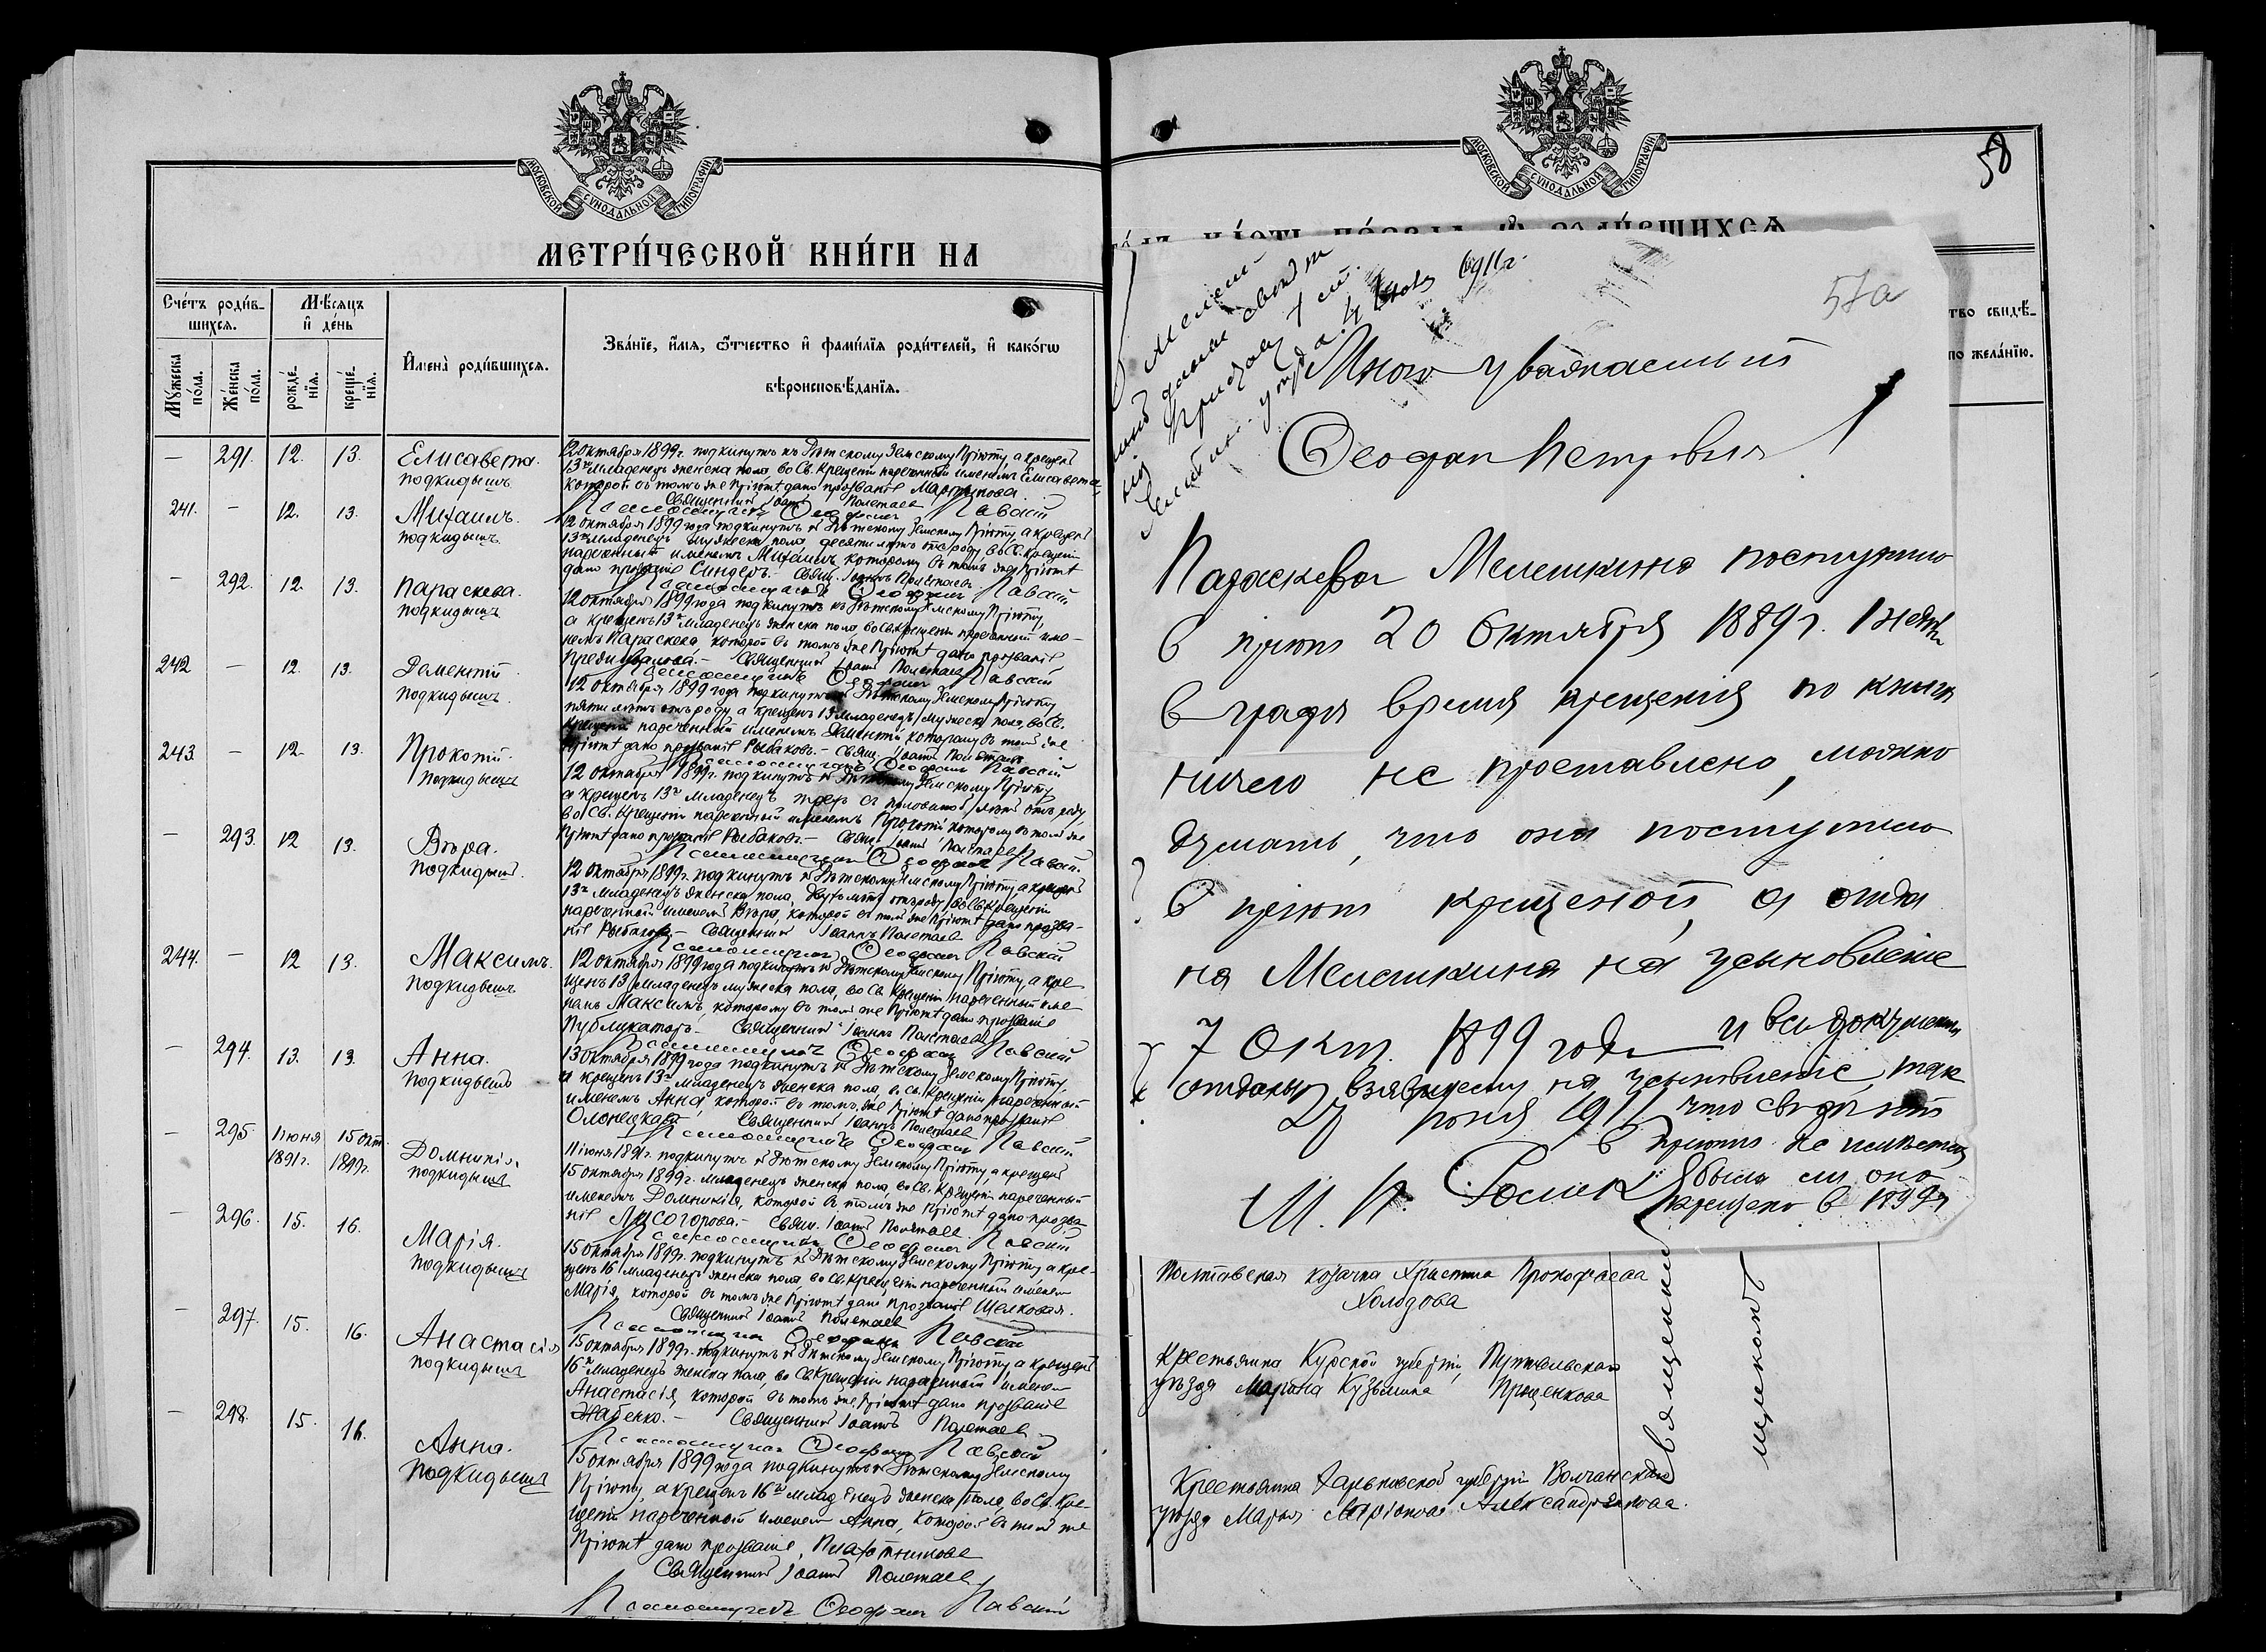 МОСКОВСКОЙ СѴНОДАЛЬНОЙ ТИПОГРАФІИ
МЕТРИ́ЧЕСКОЙ КНИ́ГИ НА
Сче́тъ роди́в-
шихся.
Мѣ́сяцъ
и҆ де́нь
И҆мена̀ роди́вшихся.
Зва́нїе, и҆́мя, ѻ҆́тчество и҆ фами́лїя роди́телей, и҆ како́гѡ
вѣроисповѣ́данїя.
Мꙋ́жеска по́ла.
Же́нска по́ла.
рожде́-нїя.
креще́-нїя.
— 291. 12. 13. Елисавета.
подкидышъ
12 октября 1899г. подкинутъ къ Дѣтскому Земскому Пріюту, а крещенъ
13го младенецъ женска пола во Св. Крещеніи нареченный именемъ Елисавета,
которой въ томъ же Пріютѣ дано прозваніе Мартынова.
Священникъ Іоаннъ Полетаевъ
Псаломщикъ Ѳеофанъ Павскій
241. — 12. 13. Михаилъ.
подкидышъ
12 октября 1899 года подкинутъ къ Дѣтскому Земскому Пріюту, а крещенъ
13го младенецъ мужеска пола, десяти лѣтъ отъ роду, во Св. Крещеніи
нареченный именемъ Михаилъ, которому въ томъ же Пріютѣ
дано прозваніе Синдеръ. Свящ. Іоаннъ Полетаевъ.
Псаломщикъ Ѳеофанъ Павскій
— 292. 12. 13. Параскева.
подкидышъ
12 октября 1899 года подкинутъ къ Дѣтскому Земскому Пріюту,
а крещенъ 13го младенецъ женска пола во Св. Крещеніи нареченный име-
немъ Параскева, которой въ томъ же Пріютѣ дано прозваніе
Священникъ Іоаннъ Полетаевъ
Псаломщикъ Ѳеофанъ Павскій
242 — 12. 13. Дометій.
подкидышъ.
12 октября 1899 года подкинутъ къ Дѣтскому Земскому Пріюту
пяти лѣтъ отъ роду, а крещенъ 13 младенецъ мужеска пола, во Св.
Крещеніи нареченный именемъ которому въ томъ же
Пріютѣ дано прозваніе Рыбаковъ. — Свящ. Іоаннъ Полетаевъ
Псаломщикъ Ѳеофанъ Павскій
243. — 12. 13. Прокопій.
подкидышъ
12 октября 1899г. подкинутъ къ Дѣтскому Земскому Пріюту,
а крещенъ 13го младенецъ трехъ съ половиной лѣтъ отъ роду,
во Св. Крещеніи нареченный именемъ Прокопій которому въ томъ же
Пріютѣ дано прозваніе Рыбаковъ. — Свящ. Іоаннъ Полетаевъ
Псаломщикъ Ѳеофанъ Павскій.
— 293. 12 13. Вѣра.
подкидышъ.
12 октября 1899г. подкинутъ къ Дѣтскому Земскому Пріюту, а крещенъ
13го младенецъ женска пола, двухъ лѣтъ отъ роду, во Св. Крещеніи
нареченный именемъ Вѣра, которой въ томъ же Пріютѣ дано прозва-
ніе Рыбакова — Священникъ Іоаннъ Полетаевъ
Псаломщикъ Ѳеофанъ Павскій
244. — 12 13. Максимъ.
подкидышъ
12 октября 1899 года подкинутъ къ Дѣтскому Земскому Пріюту, а кре
щенъ 13 младенецъ мужеска пола, во Св. Крещеніи нареченный име
немъ Максимъ, которому въ томъ же Пріютѣ дано прозваніе
Публикаторъ — Священникъ Іоаннъ Полетаевъ
Псаломщикъ Ѳеофанъ Павскій
— 294. 13. 13. Анна.
подкидышъ
13 октября 1899 года подкинутъ къ Дѣтскому Земскому Пріюту,
а крещенъ 13го младенецъ женска пола, во Св. Крещеніи нареченный
именемъ Анна, которой въ томъ же Пріютѣ дано прозваніе
Олонецкая. Священникъ Іоаннъ Полетаевъ
Псаломщикъ Ѳеофанъ Павскій
— 295 11 іюня 1891г. 15 окт. 1899г. Домникія.
подкидышъ
11 іюня 1891г. подкинутъ къ Дѣтскому Земскому Пріюту, а крещенъ
15 октября 1899г. младенецъ женска пола, во Св. Крещеніи нареченный
именемъ Домникія, которой въ томъ же Пріютѣ дано прозва
ніе Лисогорова. — Свящ. Іоаннъ Полетаевъ
Псаломщикъ Ѳеофанъ Павскій
— 296. 15. 16. Марія.
подкидышъ
15 октября 1899г. подкинутъ къ Дѣтскому Земскому Пріюту а кре-
щенъ 16 младенецъ женска пола, во Св. Крещеніи нареченный именемъ
Марія, которой въ томъ же Пріютѣ дано прозваніе Шелковая.
Священникъ Іоаннъ Полетаевъ
Псаломщикъ Ѳеофанъ Павскій
— 297. 15. 16. Анастасія
подкидышъ
15 октября 1899г. подкинутъ къ Дѣтскому Земскому Пріюту а крещенъ
16го младенецъ женска пола, во Св. Крещеніи нареченный именемъ
Анастасія, которой въ томъ же Пріютѣ дано прозваніе
Жабенко. — Священникъ Іоаннъ Полетаевъ
Псаломщикъ Ѳеофанъ Павскій
— 298. 15. 16. Анна.
подкидышъ
15 октября 1899 года подкинутъ къ Дѣтскому Земскому
Пріюту, а крещенъ 16го младенецъ женска пола, во Св. Кре-
щеніи нареченный именемъ Анна, которой въ томъ же
Пріютѣ дано прозваніе
Священникъ Іоаннъ Полетаевъ
Псаломщикъ Ѳеофанъ Павскій
МОСКОВСКОЙ СѴНОДАЛЬНОЙ ТИПОГРАФІИ
58
57а
1911г.
Много уважаемый
Ѳеофан Петрович
Параскева Мелешкина поступила
в приют 20 Октября 1889г.
в графѣ время крещенія по книгѣ
ничего не проставлено, можно
думать, что она поступила
в приют крещеной, а отда
на Мелешкина на усыновленіе
7 Окт. 1899 года и всѣ документы
отданы взявшему на усыновленіе, так
что свѣдѣній
27 іюня 1911
в пріютѣ не имѣется
была ли она
крещена в 1899г
тво свидѣ-
по жела́нїю.
Полтавская козачка Христина Прокофьева
Холодова
Крестьянка Курской губерніи, Путивльскаго
уѣзда Марина Кузьмина
Крестьянка Харьковской губерніи Волчанскаго
уѣзда Марья Александрова.
Священникъ